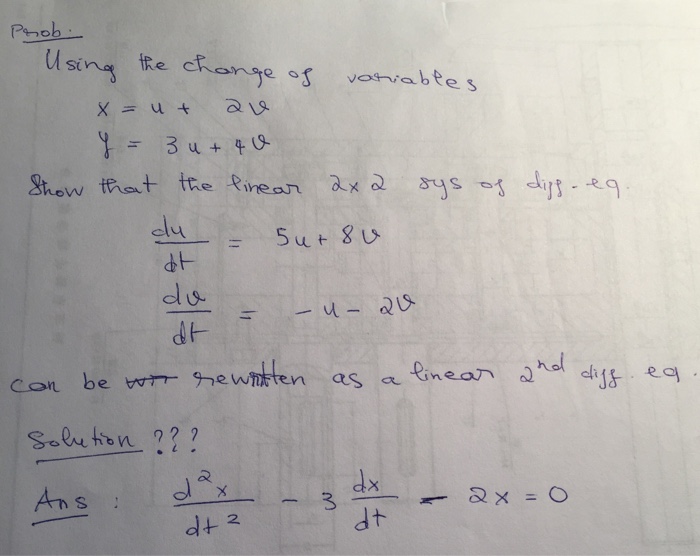 Prob.
Using the change of variables
x = u + 2v
y = 3u + 4v
Show that the linear 2x2 sys of diff. eq.
du/dt = 5u + 8v
dv/dt = -u - 2v
can be rewritten as a linear 2nd diff. eq.
Solution ???
Ans : d²x/dt² - 3 dx/dt - 2x = 0